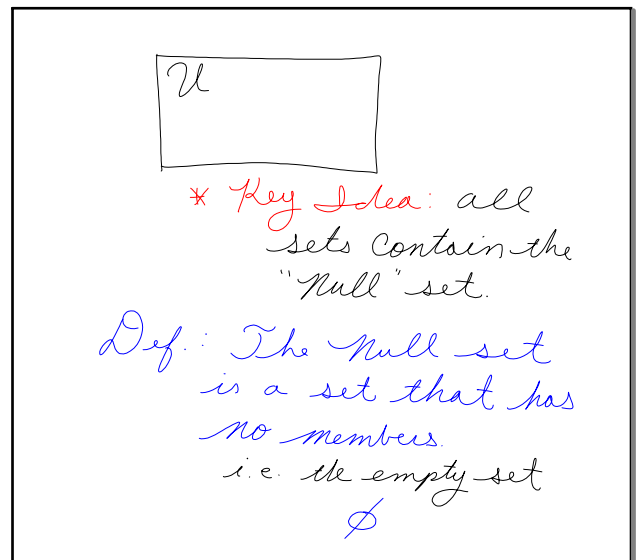 U
* Key Idea: all
sets contain the
"Null" set.
Def.: The Null set
is a set that has
no members.
i.e. the empty set
∅